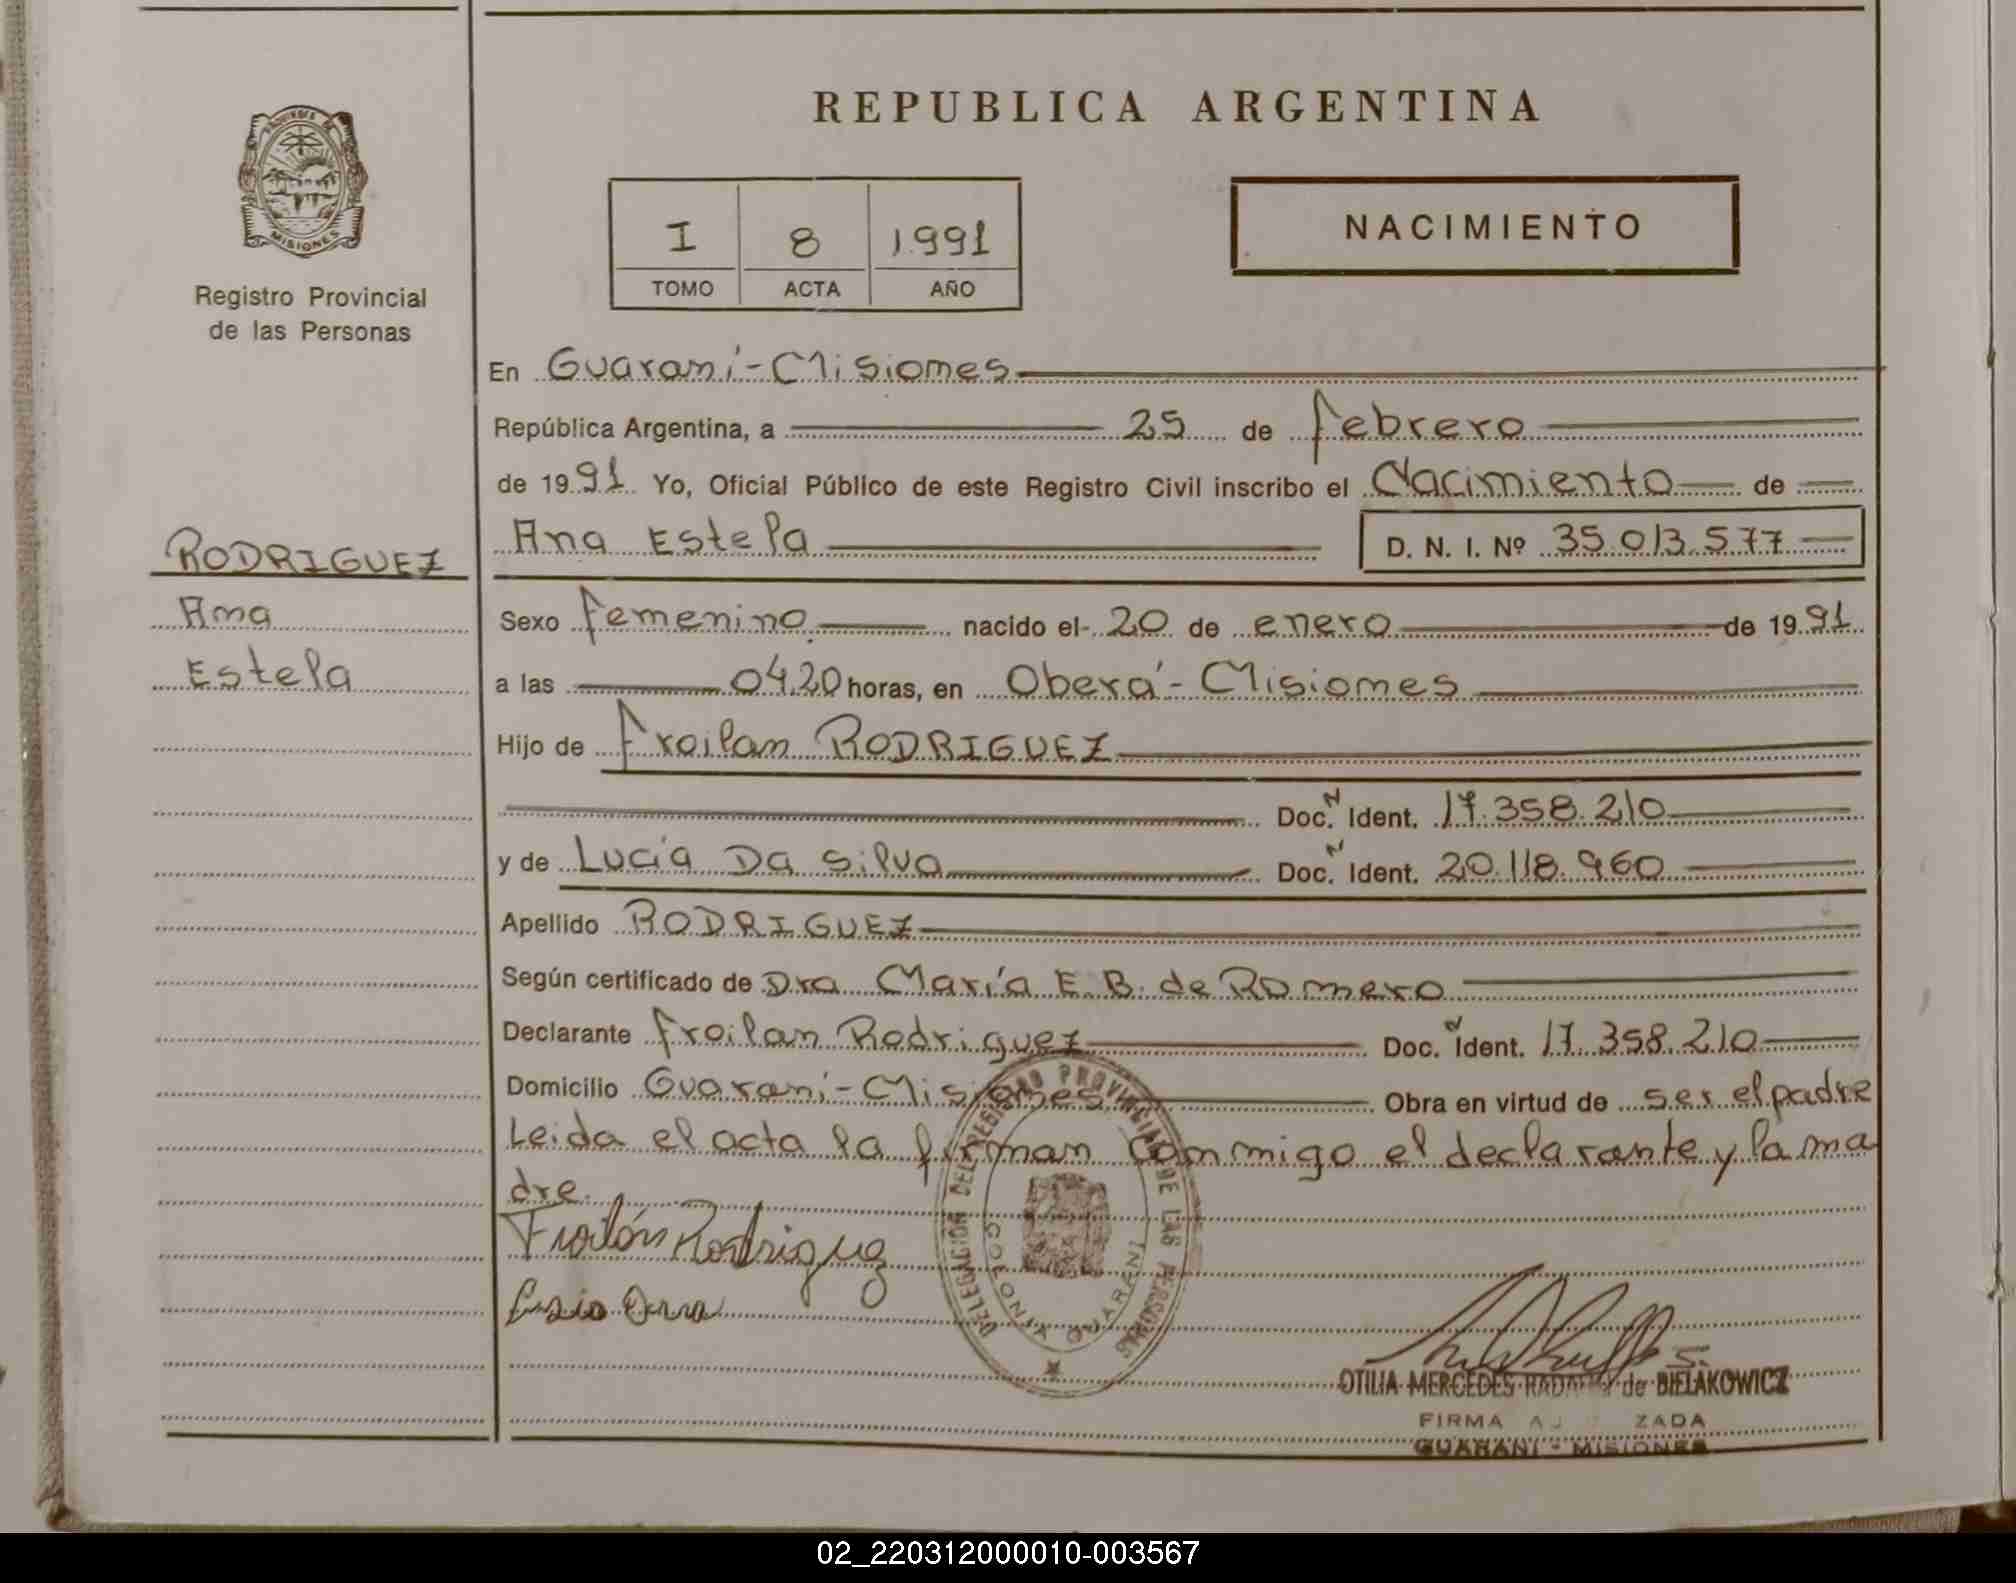 REPUBLICA ARGENTINA
PROVINCIA DE
MISIONES
Registro Provincial
de las Personas
I 8 1991
TOMO ACTA AÑO
NACIMIENTO
En Guaraní - Misiones
República Argentina, a 25 de febrero
de 1991 Yo, Oficial Público de este Registro Civil inscribo el Nacimiento de
RODRIGUEZ
Ana Estela D. N. I. Nº 35.013.577
Ana
Sexo femenino nacido el 20 de enero de 1991
Estela
a las 04.20 horas, en Oberá - Misiones
Hijo de Froilan RODRIGUEZ
Doc. N Ident. 17.358.210
y de Lucía Da Silva Doc. N Ident. 20.118.960
Apellido RODRIGUEZ
Según certificado de Dra María E. B. de Romero
Declarante Froilan Rodriguez Doc. N Ident. 17.358.210
Domicilio Guaraní - Misiones Obra en virtud de ser el padre
Leida el acta la firman conmigo el declarante y la ma
dre.
Froilán Rodriguez
DELEGACION DEL REGISTRO PROVINCIAL DE LAS PERSONAS
COLONIA GUARANI
OTILIA MERCEDES de BIELAKOWICZ
FIRMA
GUARANI - MISIONES
02_220312000010-003567